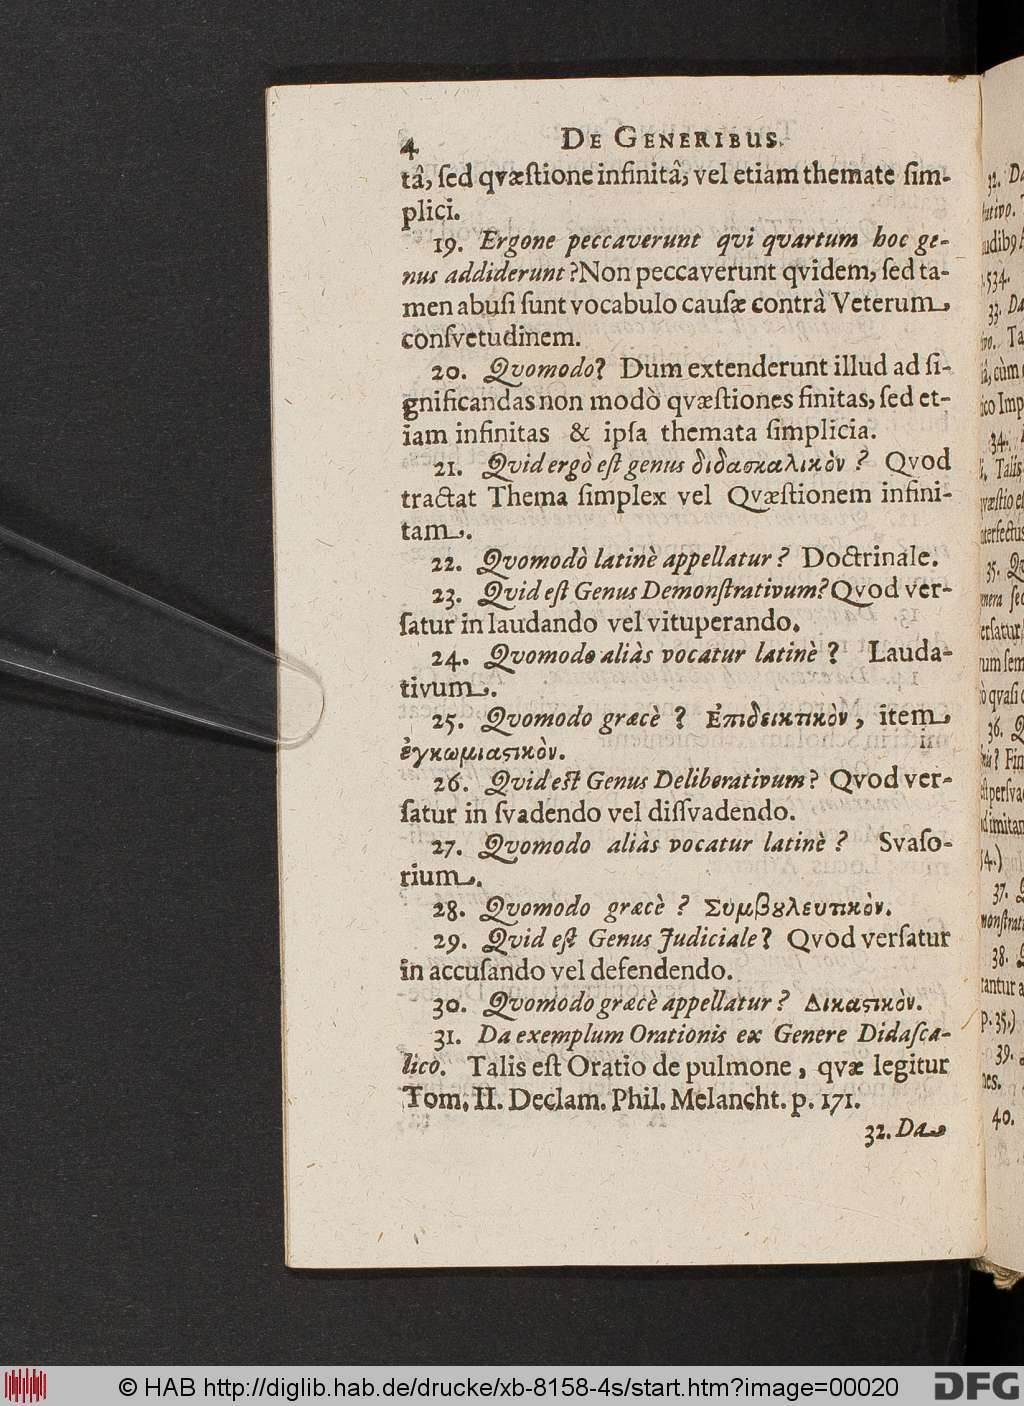 4 DE GENERIBUS.
tâ, ſed qvæſtione infinitâ, vel etiam themate ſim-
plici.
19. Ergone peccaverunt qvi qvartum hoc ge-
nus addiderunt? Non peccaverunt qvidem, ſed ta-
men abuſi ſunt vocabulo cauſæ contrà Veterum
conſvetudinem.
20. Qvomodo? Dum extenderunt illud ad ſi-
gnificandas non modò qvæſtiones finitas, ſed et-
iam infinitas & ipſa themata ſimplicia.
21. Qvid ergò eſt genus διδασκαλικὸν? Qvod
tractat Thema ſimplex vel Qvæſtionem infini-
tam.
22. Qvomodò latinè appellatur? Doctrinale.
23. Qvid eſt Genus Demonſtrativum? Qvod ver-
ſatur in laudando vel vituperando.
24. Qvomodo aliàs vocatur latinè? Lauda-
tivum.
25. Qvomodo græcè? Ἐπιδεικτικὸν, item
ἐγκωμιαϛικὸν.
26. Qvid eſt Genus Deliberativum? Qvod ver-
ſatur in ſvadendo vel diſſvadendo.
27. Qvomodo aliàs vocatur latinè? Svaſo-
rium.
28. Qvomodo græcè? Συμβȣλευτικὸν.
29. Qvid eſt Genus Judiciale? Qvod verſatur
in accuſando vel defendendo.
30. Qvomodo græcè appellatur? Δικαϛικὸν.
31. Da exemplum Orationis ex Genere Didaſca-
lico. Talis eſt Oratio de pulmone, qvæ legitur
Tom. II. Declam. Phil. Melancht. p. 171.
32. Da
32. Da
tativo.
p. 534.
33. Da
34.
35. Qv
36. Q
54.)
37. Q
38.
p. 35.)
39.
40.
© HAB http://diglib.hab.de/drucke/xb-8158-4s/start.htm?image=00020
DFG